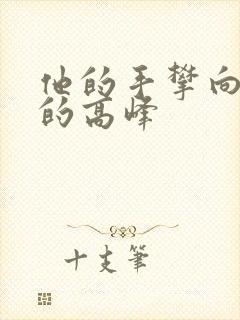 他的手攀向
的高峰
十支筆